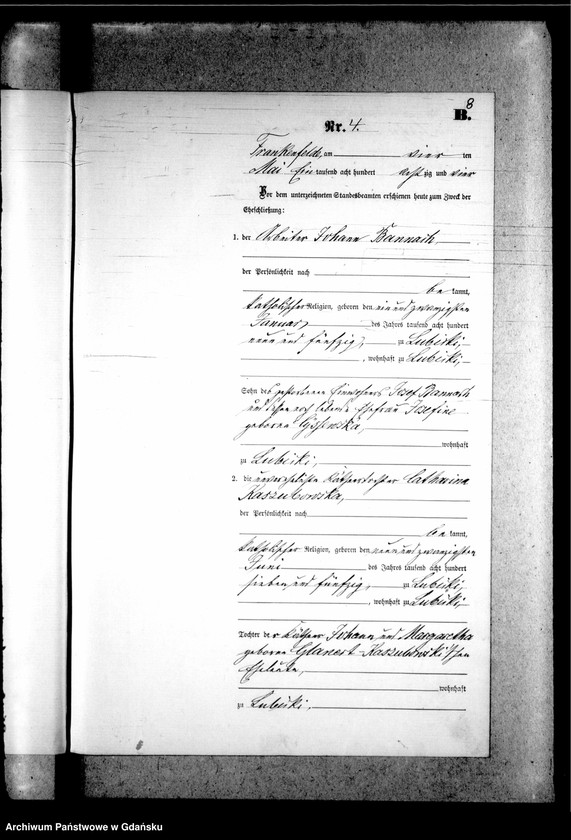 8
B.
Nr. 4.
Frankenfelde, am vier ten
Mai Ein tausend acht hundert acht zig und vier
Vor dem unterzeichneten Standesbeamten erschienen heute zum Zweck der
Eheschließung:
1. der Arbeiter Johann Bannach
der Persönlichkeit nach
be kannt,
katholischer Religion, geboren den ein und zwanzigsten
Januar des Jahres tausend acht hundert
neun und fünfzig, zu Lubiki,
, wohnhaft zu Lubiki,
Sohn des gestorbenen Einwohners Josef Bannach
und dessen noch lebende Ehefrau Josefine
geborene
wohnhaft
zu Lubiki,
2. die unverehelichte Käthnertochter Catharina
Kaszubowska,
der Persönlichkeit nach
be kannt,
katholischer Religion, geboren den neun und zwanzigsten
Juni des Jahres tausend acht hundert
sieben und fünfzig, zu Lubiki,
, wohnhaft zu Lubiki,
Tochter der Käthner Johann und Margaretha
geborene Glanert-Kaszubowski'schen
Eheleute,
wohnhaft
zu Lubiki.
Archiwum Państwowe w Gdańsku